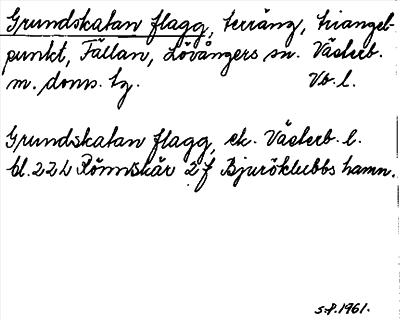 Grundskatan flagg, terräng, triangel-
punkt, Fällan, Lövångers sn. Västerb.
m. doms. lg. Vb. l.
Grundskatan flagg, ek. Västerb. l.
bl. 22 L Rönnskär 2 f Bjuröklubbs hamn.
s.å. 1961.